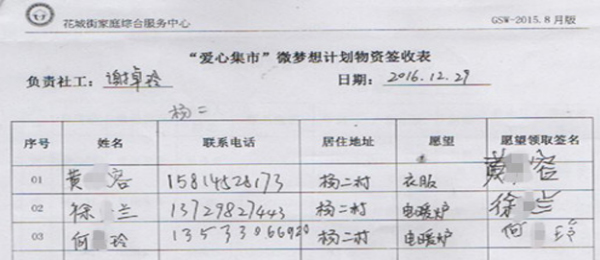 花城街家庭综合服务中心 GSW-2015.8月版
“爱心集市”微梦想计划物资签收表
负责社工：谢掉玲 日期：2016.12.29
杨二
序号 姓名 联系电话 居住地址 愿望 愿望领取签名
01 黄 容 15814528173 杨二村 衣服 黄 容
02 徐 兰 13729827443 杨二村 电暖炉 徐 兰
03 何 玲 13533066920 杨二村 电暖炉 何 玲